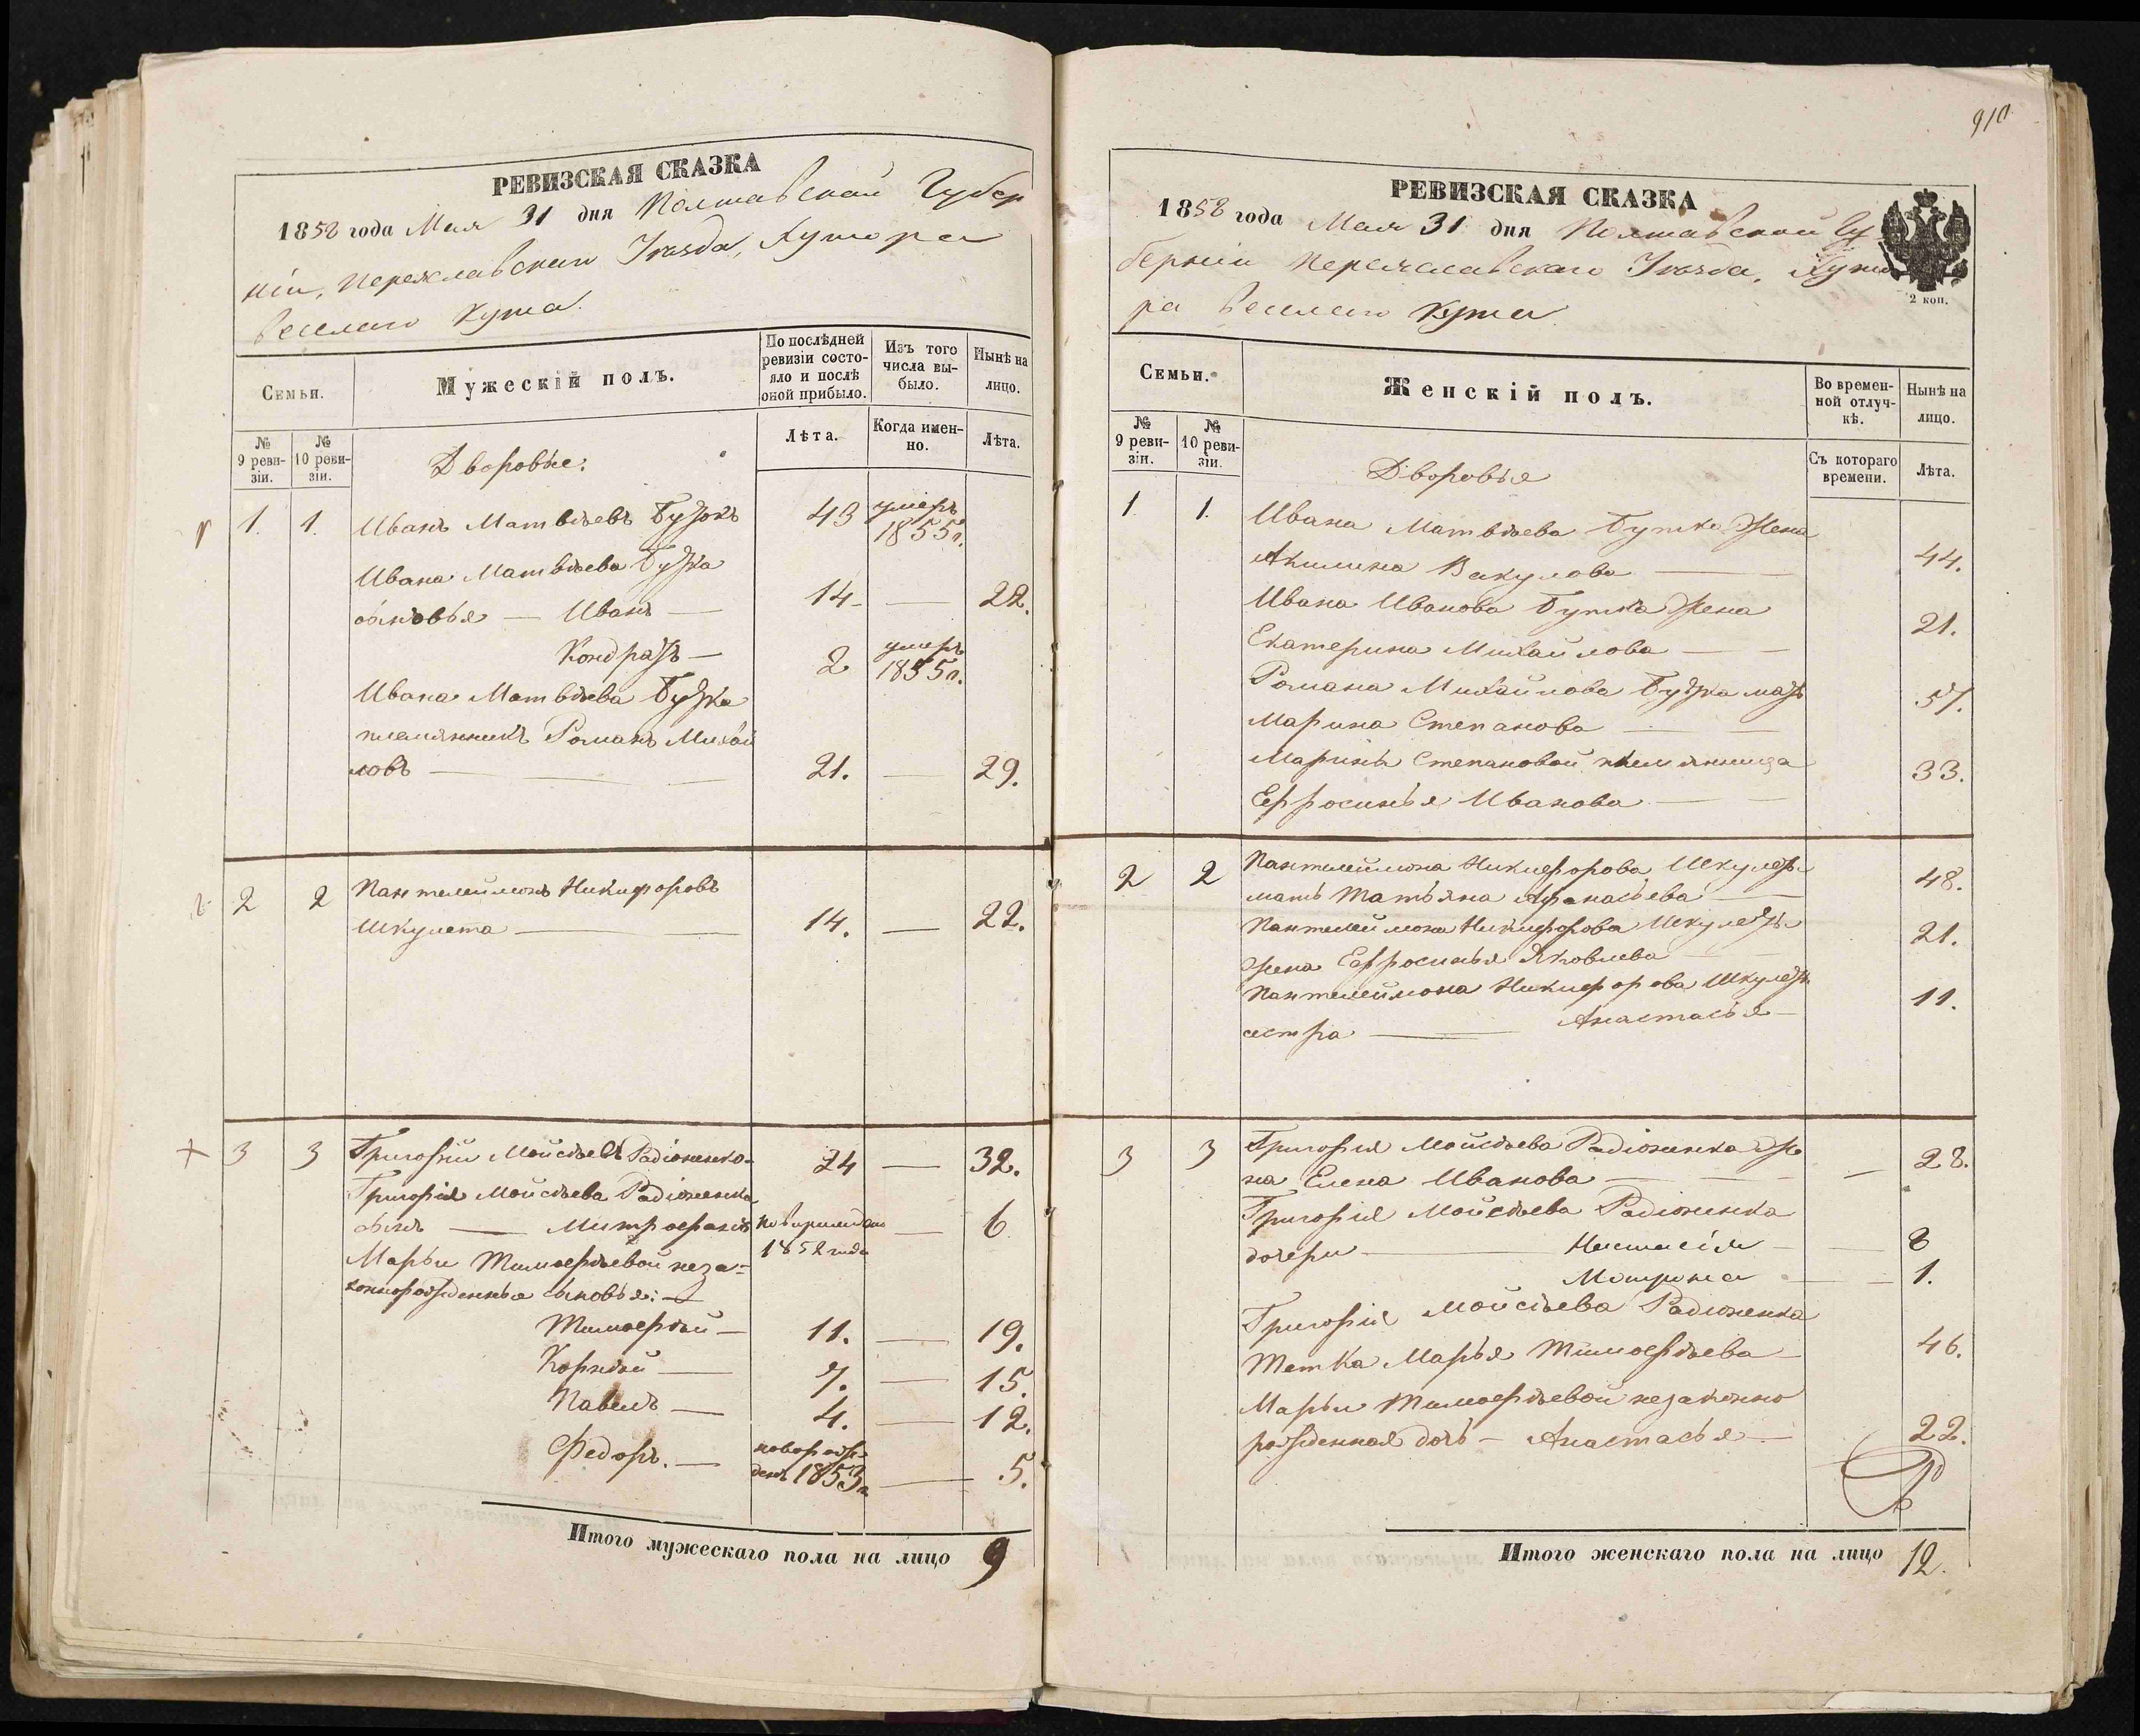 РЕВИЗСКАЯ СКАЗКА
1858 года Мая 31 дня Полтавской Губер
ніи, Переяславскаго Уѣзда, Хутора
Веселаго Кута.
Семьи.
Мужескій полъ.
По послѣдней ревизіи состояло и послѣ оной прибыло.
Изъ того числа выбыло.
Нынѣ на лицо.
№ 9 ревизіи.
№ 10 ревизіи.
Дворовые:
Лѣта.
Когда именно.
Лѣта.
1. 1. Иванъ Матвѣевъ Бутокъ 43 умеръ 1855 г.
Ивана Матвѣева Бутка
сыновья — Иванъ — 14 — 22.
Кондратъ — 2 умеръ 1855 г.
Ивана Матвѣева Бутка
племянникъ Романъ Михай
ловъ — 21. — 29.
2 2 Пантелеймонъ Никифоровъ
Шкулета — 14. — 22.
3 3 Григорій Мойсѣевъ Радіоненко 24 — 32.
Григорія Мойсѣева Радіоненка
сынъ — Митрофанъ 1852 года — 6
Марьи Тимофѣевой неза-
коннорожденные сыновья:
Тимофѣй — 11. — 19.
Корнѣй — 7. — 15.
Павелъ — 4. — 12.
Федоръ. — новорожденъ 1853 г. — 5.
Итого мужескаго пола на лицо 9
910
РЕВИЗСКАЯ СКАЗКА
1858 года Мая 31 дня Полтавской Гу
берніи Переяславскаго Уѣзда, Хуто
ра Веселаго Кута
2 коп.
Семьи.
Женскій полъ.
Во временной отлучкѣ.
Нынѣ на лицо.
№ 9 ревизіи.
№ 10 ревизіи.
Дворовыя
Съ котораго времени.
Лѣта.
1. 1. Ивана Матвѣева Бутка Жена
Акилина Вакулова — 44.
Ивана Иванова Бутка Жена
Екатерина Михайлова — 21.
Романа Михайлова Бутка мать
Марина Степанова — 57.
Марины Степановой племянница
Ефросинья Иванова — 33.
2 2 Пантелеймона Никифорова Шкулеты
мать Татьяна Афанасьева — 48.
Пантелеймона Никифорова Шкулеты
жена Ефросинья Яковлева — 21.
Пантелеймона Никифорова Шкулеты
сестра — Анастасья — 11.
3 3 Григорія Мойсѣева Радіоненка Же
на Елена Иванова — 28.
Григорія Мойсѣева Радіоненка
дочери — Настасія — 8
Мотрона — 1.
Григорія Мойсѣева Радіоненка
Тетка Марья Тимофѣева — 46.
Марьи Тимофѣевой незаконно
рожденная дочь — Анастасья — 22.
Итого женскаго пола на лицо 12.